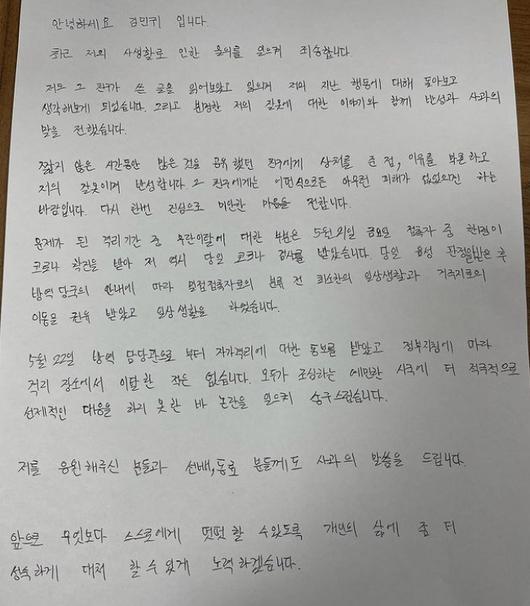 안녕하세요 김민귀 입니다.
최근 저의 사생활로 인한 물의를 일으켜 죄송합니다.
저는 그 친구가 쓴 글을 읽어보았고 잃으며 저의 지난 행동에 대해 돌아보고
생각해보게 되었습니다. 그리고 분명한 저의 잘못에 대한 이야기와 함께 반성과 사과의
말을 전했습니다.
짧지 않은 시간동안 많은 것을 공유했던 친구에게 상처를 준 점, 이유를 막론하고
저의 잘못이며 반성합니다. 그 친구에게는 어떤식으로든 아무런 피해가 없었으면 하는
바람입니다. 다시 한번 진심으로 미안한 마음을 전합니다.
문제가 된 격리기간 중 무단이탈에 대한 부분은 5월 21일 금요일 접촉자 중 한명이
코로나 확진을 받아 저 역시 당일 코로나 검사를 받았습니다. 당일 음성 판정을 받은 후
방역 당국의 안내에 따라 밀접접촉자로의 분류 전 최소한의 일상생활과 거주지로의
이동을 권유 받았고 일상 생활을 하였습니다.
5월 22일 방역 담당관으로 부터 자가격리에 대한 통보를 받았고 정부지침에 따라
격리 장소에서 이탈한 적은 없습니다. 모두가 조심하는 예민한 시국에 더 적극적으로
선제적인 대응을 하지 못한 바 논란을 일으켜 송구스럽습니다.
저를 응원해주신 분들과 선배, 동료 분들께도 사과의 말씀을 드립니다.
앞으로 무엇보다 스스로에게 떳떳할 수있도록 개인의 삶에 좀 더
성숙하게 대처 할수있게 노력하겠습니다.